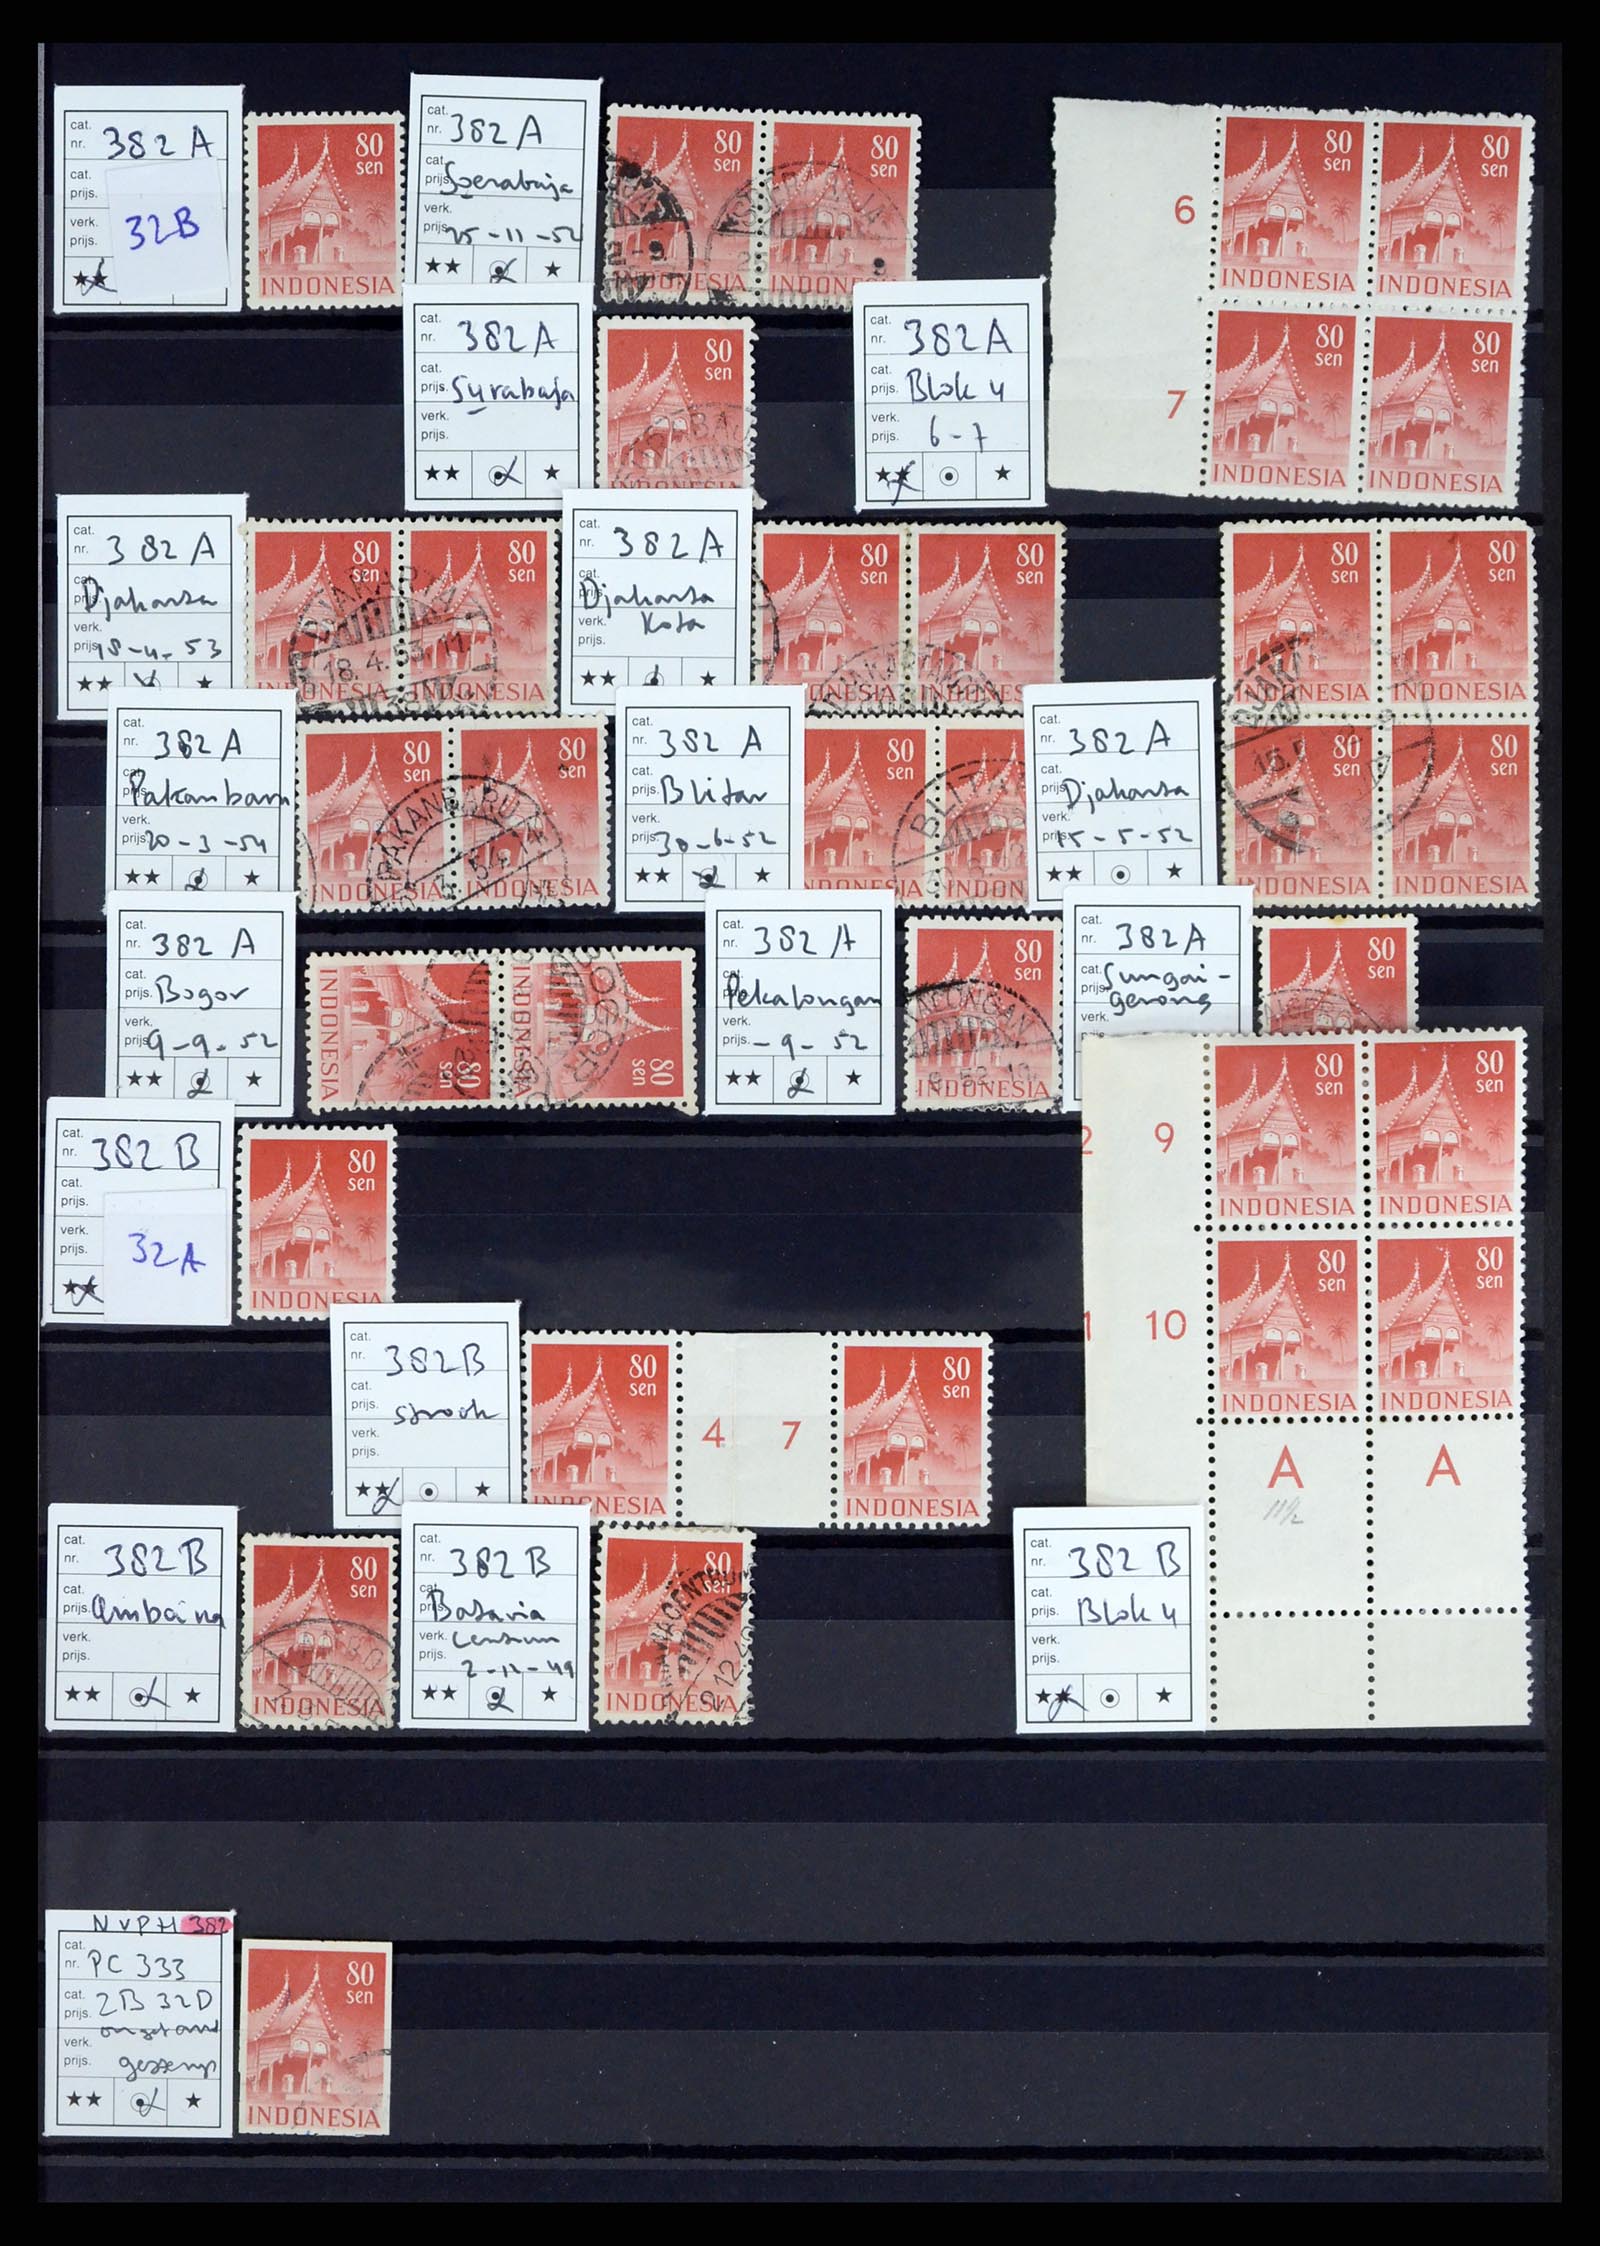 cat.
nr. 382 A
cat.
prijs.
verk.
prijs.
32B
★★
80
sen
INDONESIA
cat.
nr. 382 A
cat.
prijs. Soerabaja
verk.
prijs. 25-11-52
★★ ★
80
sen
INDONESIA
80
sen
INDONESIA
6
80
sen
INDONESIA
80
sen
INDONESIA
7
80
sen
INDONESIA
80
sen
INDONESIA
cat.
nr. 382 A
cat.
prijs. Surabaja
verk.
prijs.
★★ ★
80
sen
cat.
nr. 382 A
cat.
prijs. Blok 4
verk.
prijs. 6-7
★★ ★
cat.
nr. 382 A
cat.
prijs. Djakarta
verk.
prijs. 18-4-53
★★ ★
80
sen
INDONESIA
80
sen
INDONESIA
DJAKARTA
18.4.53.11
cat.
nr. 382 A
cat.
prijs. Djakarta
verk. Kota
prijs.
★★ ★
80
sen
INDONESIA
80
sen
INDONESIA
80
sen
INDONESIA
80
sen
INDONESIA
80
sen
INDONESIA
80
sen
INDONESIA
cat.
nr. 382 A
cat.
prijs. Pakanbaru
verk.
prijs. 20-3-54
★★ ★
80
sen
INDONESIA
80
sen
INDONESIA
PAKANBARU
cat.
nr. 382 A
cat.
prijs. Blitar
verk.
prijs. 30-6-52
★★ ★
80
sen
INDONESIA
BLITAR
cat.
nr. 382 A
cat.
prijs. Djakarta
verk.
prijs. 15-5-52
★★ ★
cat.
nr. 382 A
cat.
prijs. Bogor
verk.
prijs. 9-9-52
★★ ★
INDONESIA
80
sen
INDONESIA
80
sen
BOGOR
cat.
nr. 382 A
cat.
prijs. Pekalongan
verk.
prijs. -9-52
★★ ★
80
sen
INDONESIA
cat.
nr. 382 A
cat. Sungai-
prijs. gerong
verk.
80
sen
2 9
80
sen
INDONESIA
80
sen
INDONESIA
1 10
80
sen
INDONESIA
80
sen
INDONESIA
A A
11½
cat.
nr. 382 B
cat.
prijs.
verk.
prijs.
32A
★★
80
sen
INDONESIA
cat.
nr. 382B
cat.
prijs. strook
verk.
prijs.
★★ ★
80
sen
INDONESIA
4 7
80
sen
INDONESIA
cat.
nr. 382 B
cat.
prijs.
verk.
prijs.
★★ ★
80
sen
INDONESIA
cat.
nr. 382 B
cat.
prijs. Batavia
verk. Centrum
prijs. 2-12-49
★★ ★
80
sen
INDONESIA
cat.
nr. 382 B
cat.
prijs. Blok 4
verk.
prijs.
★★ ★
NVPH 382
cat.
nr. PC 333
cat.
prijs. 2B 32D
ongetand
verk.
prijs. gestemp
★★ ★
80
sen
INDONESIA